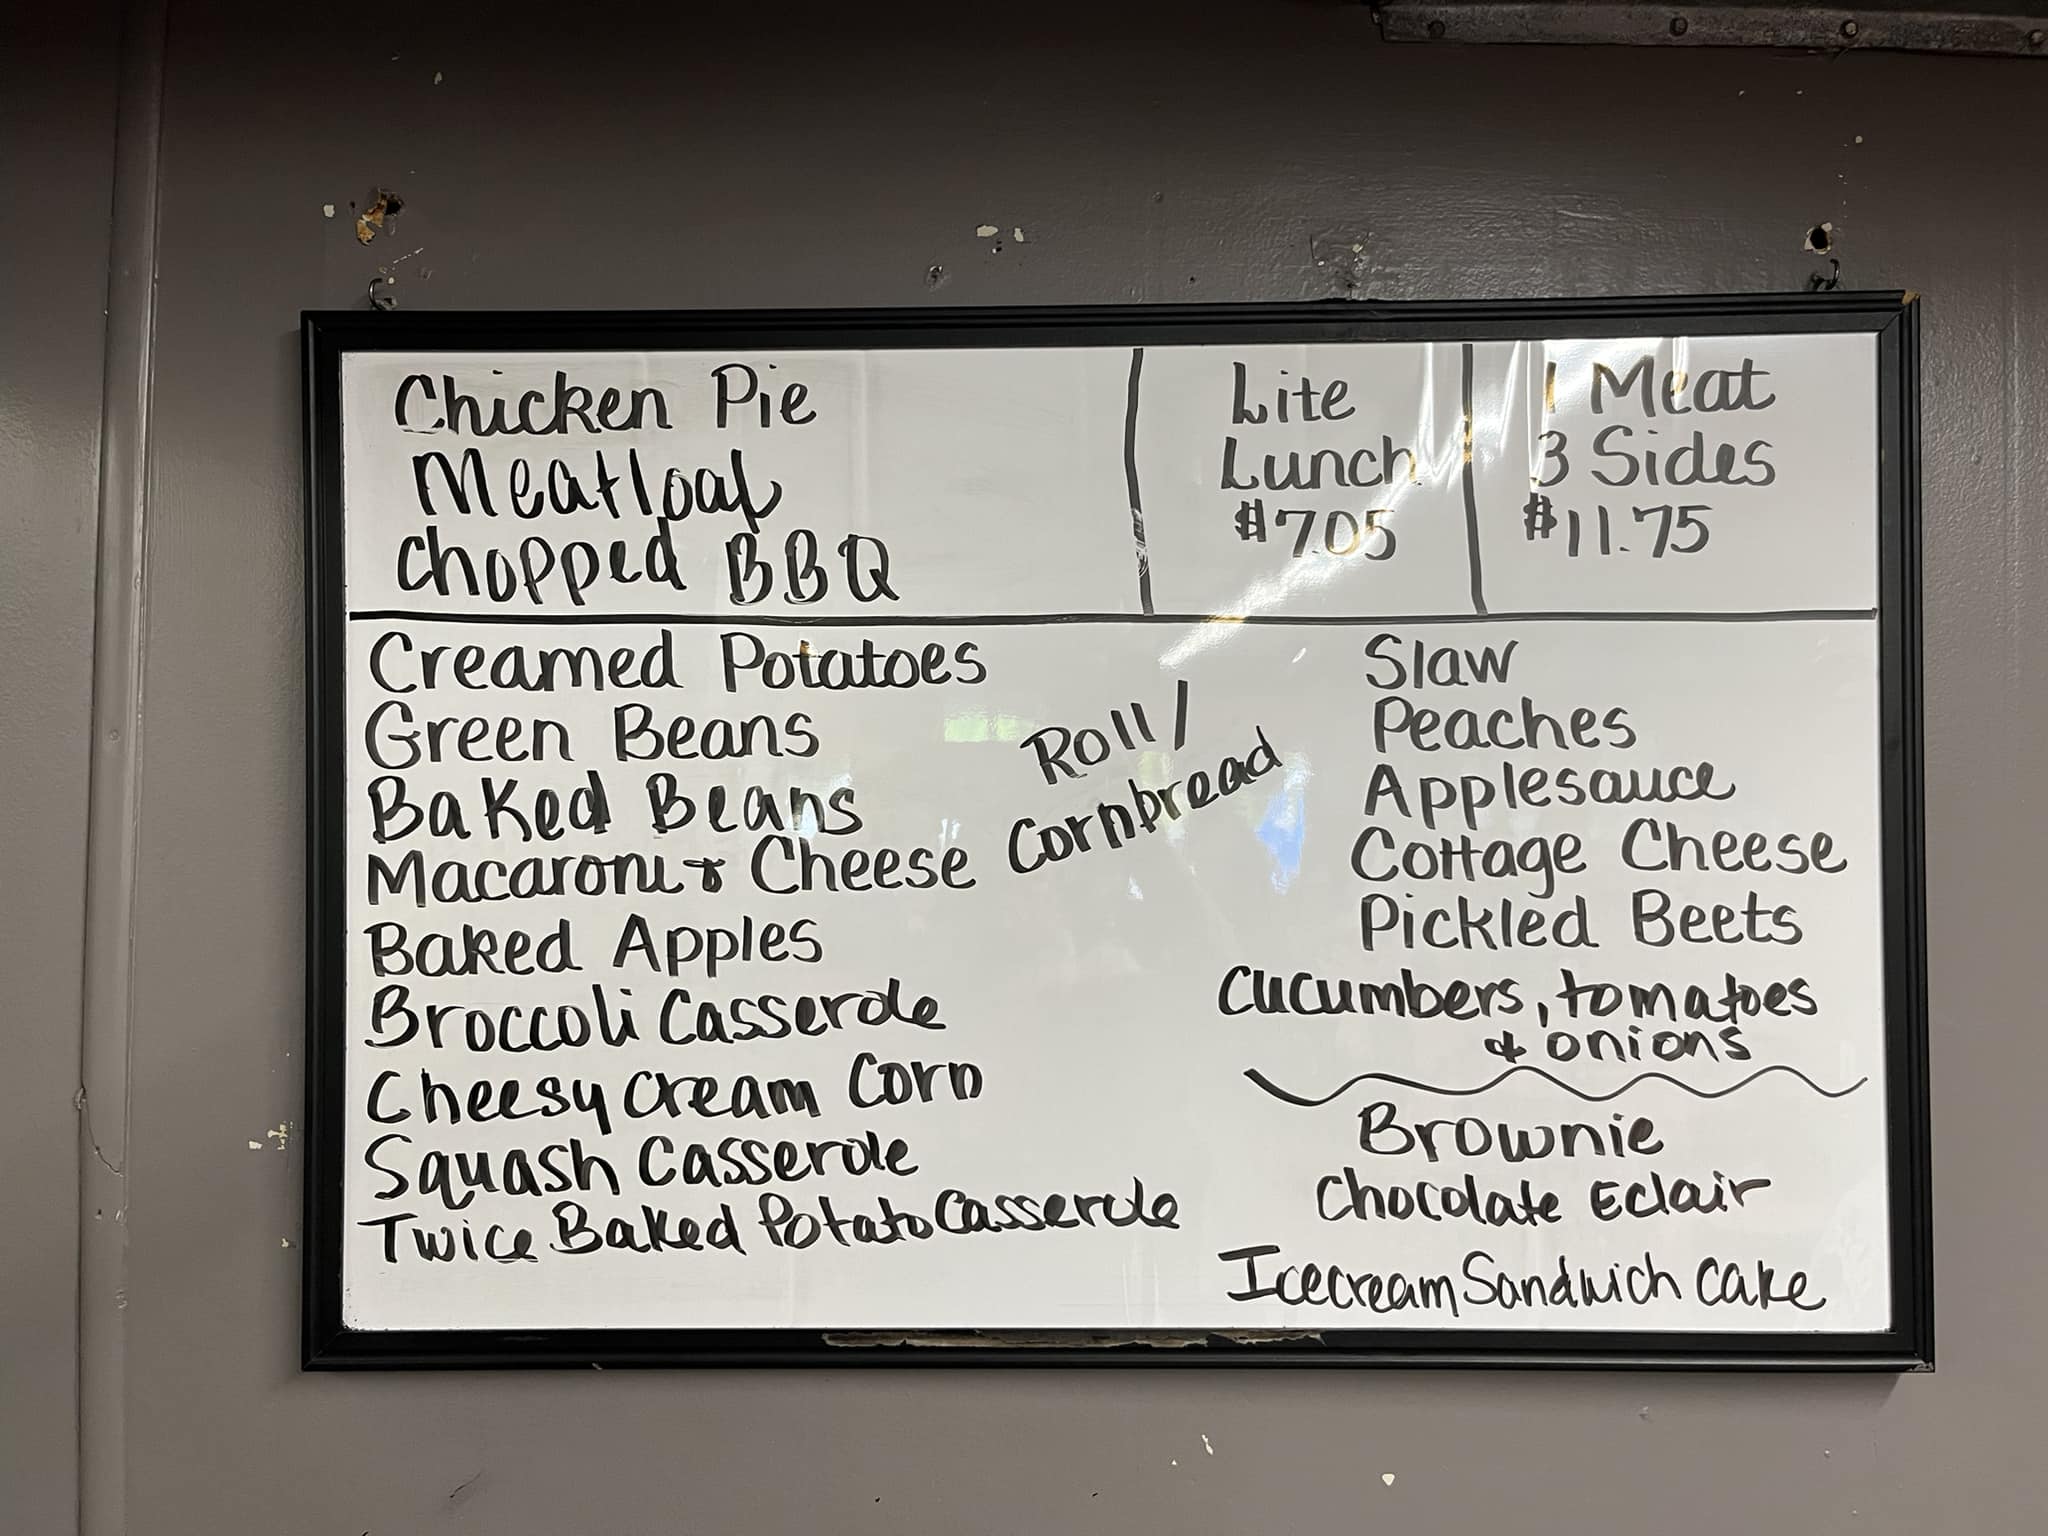 Chicken Pie
Meatloaf
Chopped BBQ
Lite
Lunch
$7.05
1 Meat
3 Sides
$11.75
Creamed Potatoes
Green Beans
Baked Beans
Macaroni & Cheese
Baked Apples
Broccoli Casserole
Cheesy Cream Corn
Squash Casserole
Twice Baked Potato Casserole
Roll/
Cornbread
Slaw
Peaches
Applesauce
Cottage Cheese
Pickled Beets
Cucumbers, tomatoes
& onions
Brownie
Chocolate Eclair
Icecream Sandwich Cake